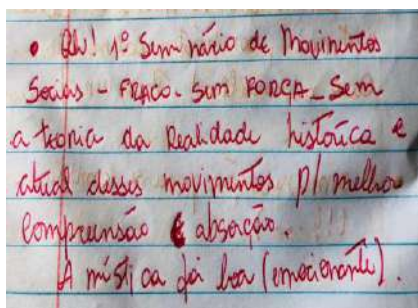 • Obs! 1º Seminário de Movimentos
Sociais - FRACO. Sem FORÇA - Sem
a teoria da Realidade histórica e
atual desses movimentos p/ melhor
compreensão & absorção.
A mística foi boa (emocionante).